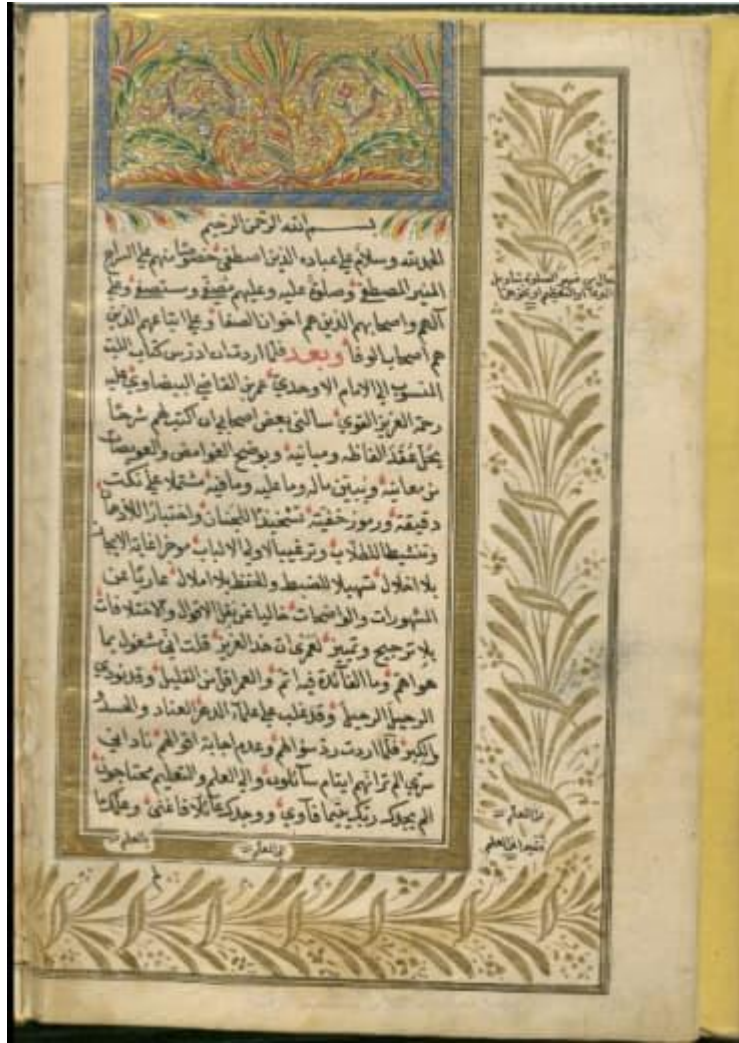 بسم الله الرحمن الرحيم
الحمد لله وسلام على عباده الذين اصطفى خصوصا منهم على السراج
المنير المصطفى وصلوة عليه وعليهم وعلى
آلهم واصحابهم الذين هم اخوان الصفا وعلى اتباعهم الذين
هم اصحاب الوفا وبعد فلما اردت ان ادرس كتاب اللب
المنسوب الى الامام الاوحدي عمر بن القاضي البيضاوي عليه
رحمة العزيز القوي سالنى بعض اصحابى ان اكتب لهم شرحا
يحل عقد الفاظه ومبانيه ويوضح الغوامض والعويصات
من معانيه ويبين ماله وما عليه وما فيه مشتملا على نكت
دقيقة ورموز خفية للجنان واختبارا للاذهان
وتنشيطا للطلاب وترغيبا لاولى الالباب موجزا غاية الايجاز
بلا اخلال تسهيلا للضبط والحفظ بلا املال عاريا عن
المشهورات والواضحات خاليا عن نقل الاقوال والاختلافات
بلا ترجيح وتمييز هذا العزيز قلت انى مشغول بما
هو اهم وما الفائدة فيه اتم والعمر اقل من القليل وقد نودي
الرحيل الرحيل وقد غلب على علماء الدهر العناد والحسد
والكبر فلما اردت رد سؤالهم وعدم اجابة اقوالهم نادانى
سرى الم تر انهم ايتام سائلون والى العلم والتعليم محتاجون
الم يجدك ربك يتيما فآوى ووجدك عائلا فاغنى وعلمك ما
من العلم